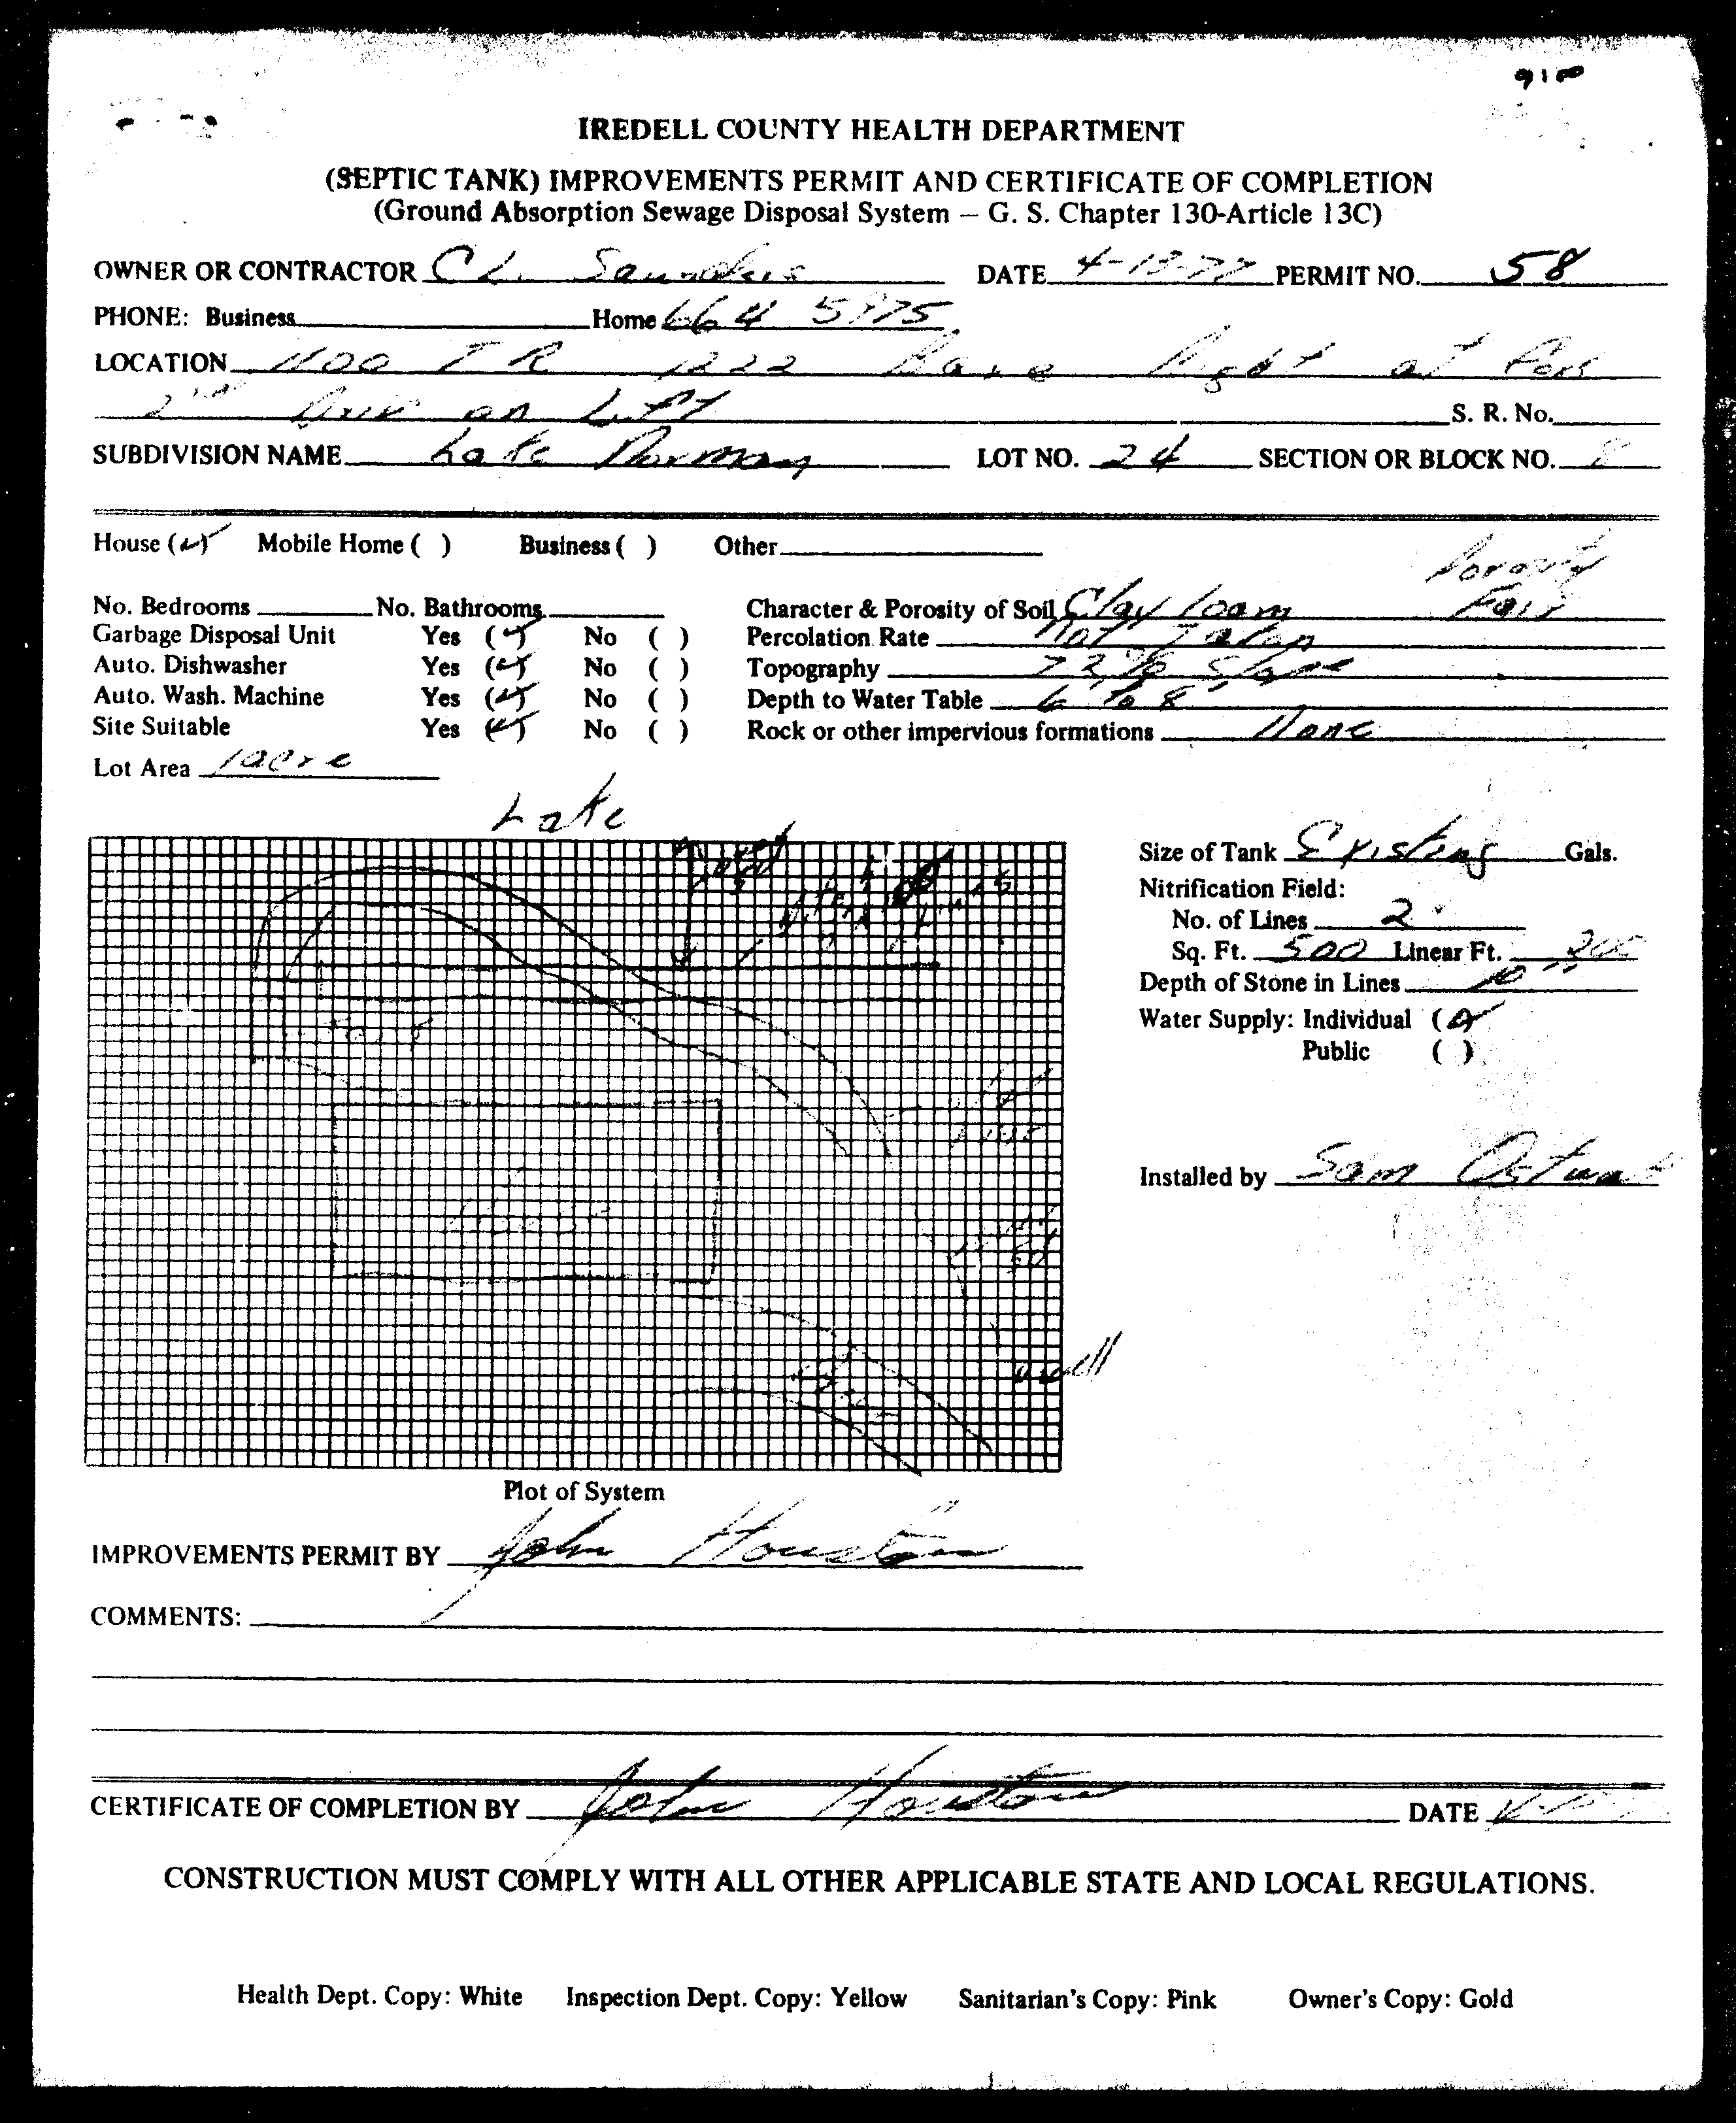 9:00
IREDELL COUNTY HEALTH DEPARTMENT
(SEPTIC TANK) IMPROVEMENTS PERMIT AND CERTIFICATE OF COMPLETION
(Ground Absorption Sewage Disposal System – G. S. Chapter 130-Article 13C)
OWNER OR CONTRACTOR C L. Saunders DATE 4-13-77 PERMIT NO. 58
PHONE: Business Home 664 5975
LOCATION 1100 T R 1222 Right at
2nd on Left S. R. No.
SUBDIVISION NAME Lake Norman LOT NO. 24 SECTION OR BLOCK NO. 8
House (✓) Mobile Home ( ) Business ( ) Other
No. Bedrooms No. Bathrooms Character & Porosity of Soil Clay loam Porosity Fair
Garbage Disposal Unit Yes (✓) No ( ) Percolation Rate Not Taken
Auto. Dishwasher Yes (✓) No ( ) Topography Slope
Auto. Wash. Machine Yes (✓) No ( ) Depth to Water Table 6' to 8'
Site Suitable Yes (✓) No ( ) Rock or other impervious formations None
Lot Area 1 acre
Lake
Size of Tank Existing Gals.
Nitrification Field:
No. of Lines 2
Sq. Ft. 500 Linear Ft. 200
Depth of Stone in Lines 10"
Water Supply: Individual (✓)
Public ( )
Installed by Sam
well
Plot of System
IMPROVEMENTS PERMIT BY John Houston
COMMENTS:
CERTIFICATE OF COMPLETION BY John Houston DATE
CONSTRUCTION MUST COMPLY WITH ALL OTHER APPLICABLE STATE AND LOCAL REGULATIONS.
Health Dept. Copy: White Inspection Dept. Copy: Yellow Sanitarian's Copy: Pink Owner's Copy: Gold